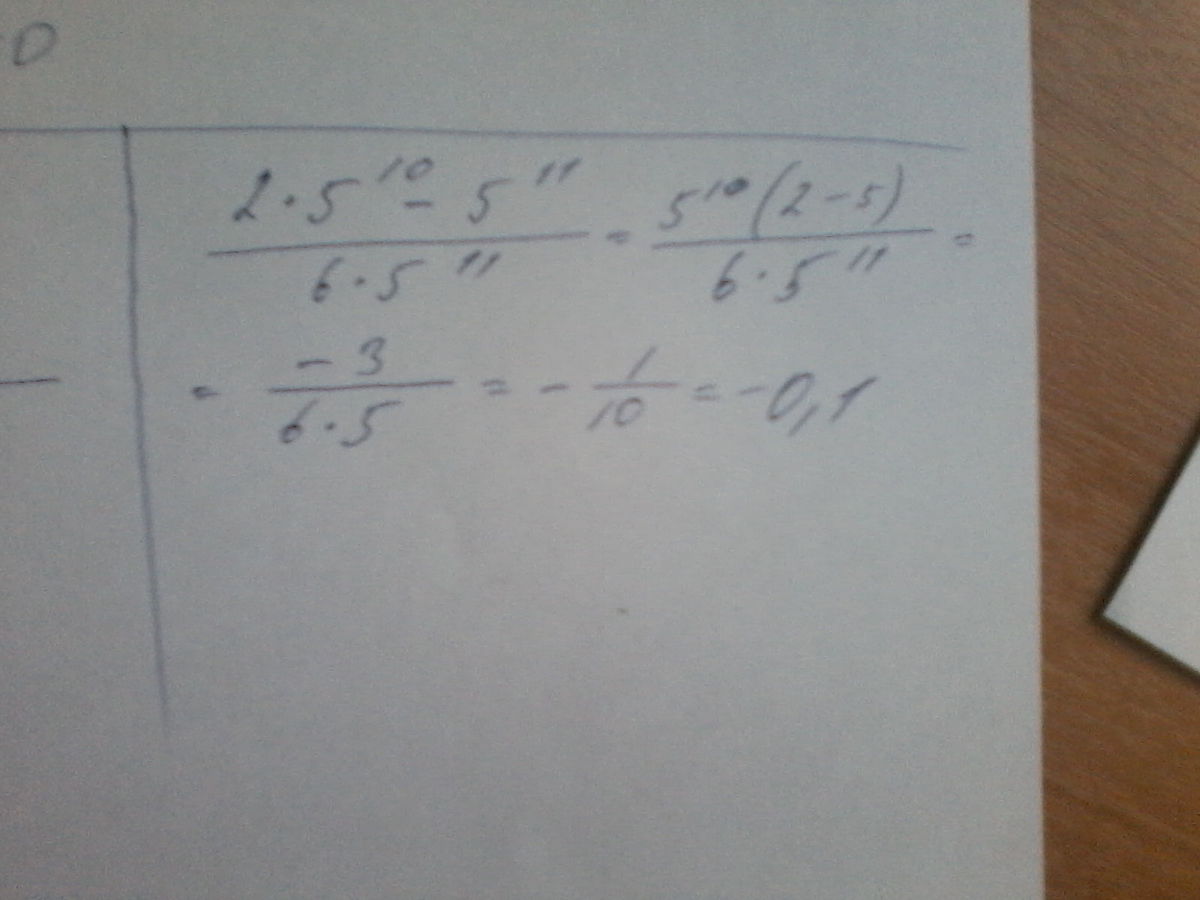 0
(2·5¹⁰ - 5¹¹)/(6·5¹¹) = 5¹⁰(2-5)/(6·5¹¹) =
= -3/(6·5) = -1/10 = -0,1